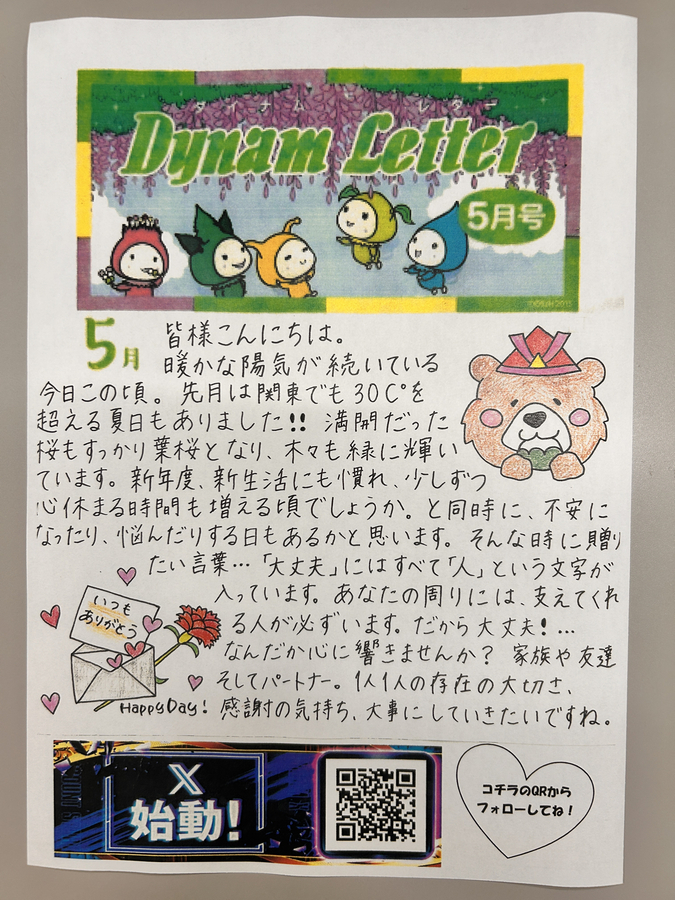 ダイナム レター
Dynam Letter
5月号
5月
皆様こんにちは。
暖かな陽気が続いている
今日この頃。先月は関東でも30C°を
超える夏日もありました!!満開だった
桜もすっかり葉桜となり、木々も緑に輝い
ています。新年度、新生活にも慣れ、少しずつ
心休まる時間も増える頃でしょうか。と同時に、不安に
なったり、悩んだりする日もあるかと思います。そんな時に贈り
たい言葉…「大丈夫」にはすべて「人」という文字が
入っています。あなたの周りには、支えてくれ
る人が必ずいます。だから大丈夫!…
なんだか心に響きませんか?家族や友達
そしてパートナー。1人1人の存在の大切さ、
感謝の気持ち、大事にしていきたいですね。
いつも
ありがとう
HappyDay!
X
始動!
コチラのQRから
フォローしてね!